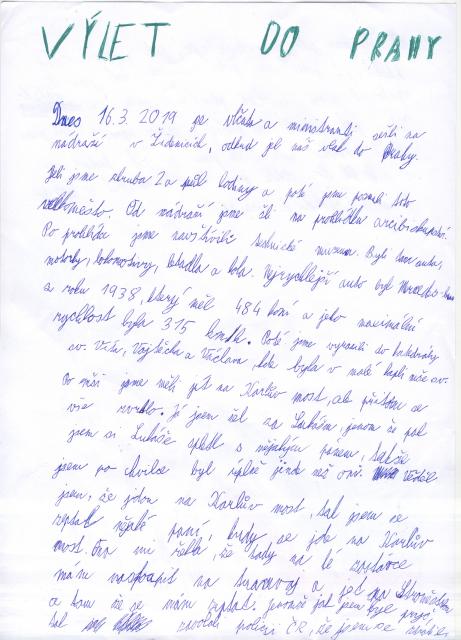 VÝLET DO PRAHY
Dnes 16.3. 2019 se vlčata a ministranti sešli na
nádraží v Židenicích, odkud jel náš vlak do Prahy.
Jeli jsme zhruba 2 a půl hodiny a poté jsme poznali toto
velkoměsto. Od nádraží jsme šli na prohlídku arcibiskupství.
Po prohlídce jsme navštívili technické muzeum. Byli tam auta,
motorky, lokomotivy, letadla a kola. Nejrychlejší auto byl Mercedes
z roku 1938, který měl 484 koní a jeho maximální
rychlost byla 315 km/h. Poté jsme vyrazili do katedrály
sv. Víta, Vojtěcha a Václava, kde byla v malé kapli mše sv.
Po mši jsme měli jít na Karlův most, ale přitom se
vše zvrtlo. Já jsem šel za Lukášem, jenom že pak
jsem si Lukáše spletl s nějakým panem, takže
jsem po chvilce byl úplně jinde než oni. Věděl
jsem, že jdou na Karlův most, tak jsem se
zeptal nějaké paní, kudy se jde na Karlův
most. Ona mi řekla, že tady na té zastávce
mám nastoupit na tramvaj a jet na
a tam že se mám zeptat. Jenomže já jsem
tak zavolal policii ČR, že jsem se ztratil